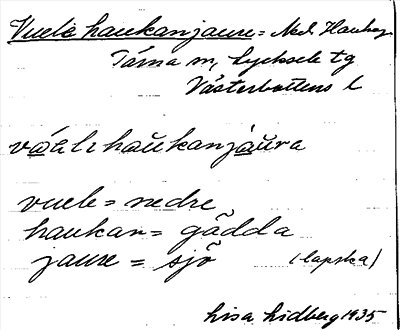 Vuele haukanjaure = Ned. Haukaj.
Tärna sn, Lycksele tg
Västerbottens l
våålе haŭkanjåŭra
vuele = nedre
haukan = gädda
jaure = sjö (lapska)
Lisa Lidberg 1935